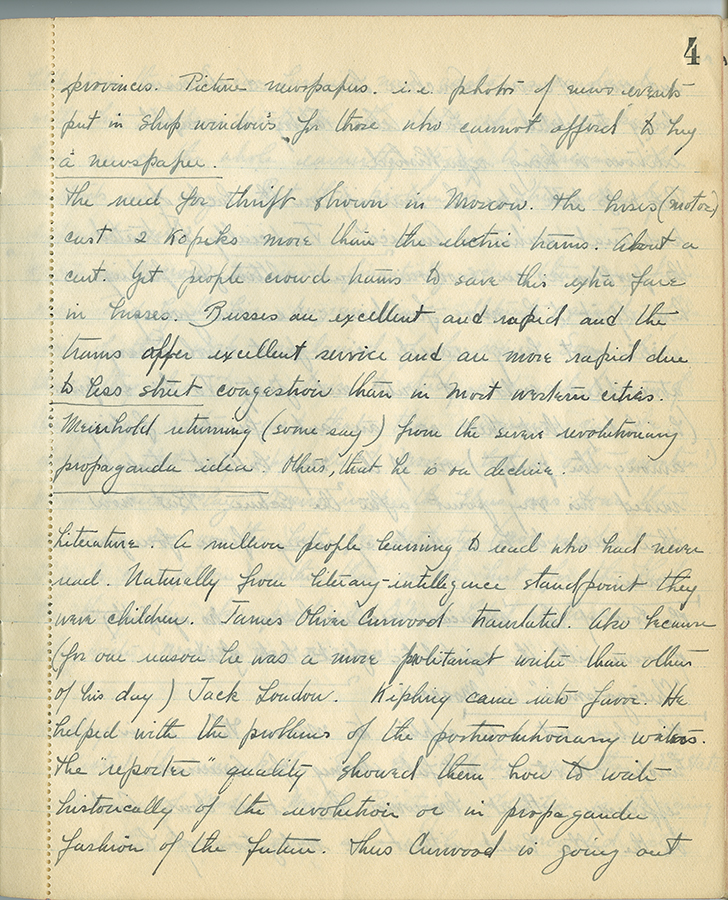 4
provinces. Picture newspapers. i.e. photos of news events
put in shop windows for those who cannot afford to buy
a newspaper.
The need for thrift shown in Moscow. The buses (motor)
cost 2 Kopeks more than the electric trams. About a
cent. Yet people crowd trams to save this extra fare
in busses. Busses are excellent and rapid and the
trams offer excellent service and are more rapid due
to less street congestion than in most western cities.
Meierhold returning (some say) from the severe revolutionary
propaganda idea. Others, that he is on decline.
Literature. A million people learning to read who had never
read. Naturally from literary-intellegence standpoint they
were children. James Oliver Curwood translated. Also because
(for one reason he was a more politariat write than others
of his day) Jack London. Kipling came into favor. He
helped with the problems of the postrevolutionary writers.
The "reporter" quality showed them how to write
historically of the revolution or in propaganda
fashion of the future. Thus Curwood is going out